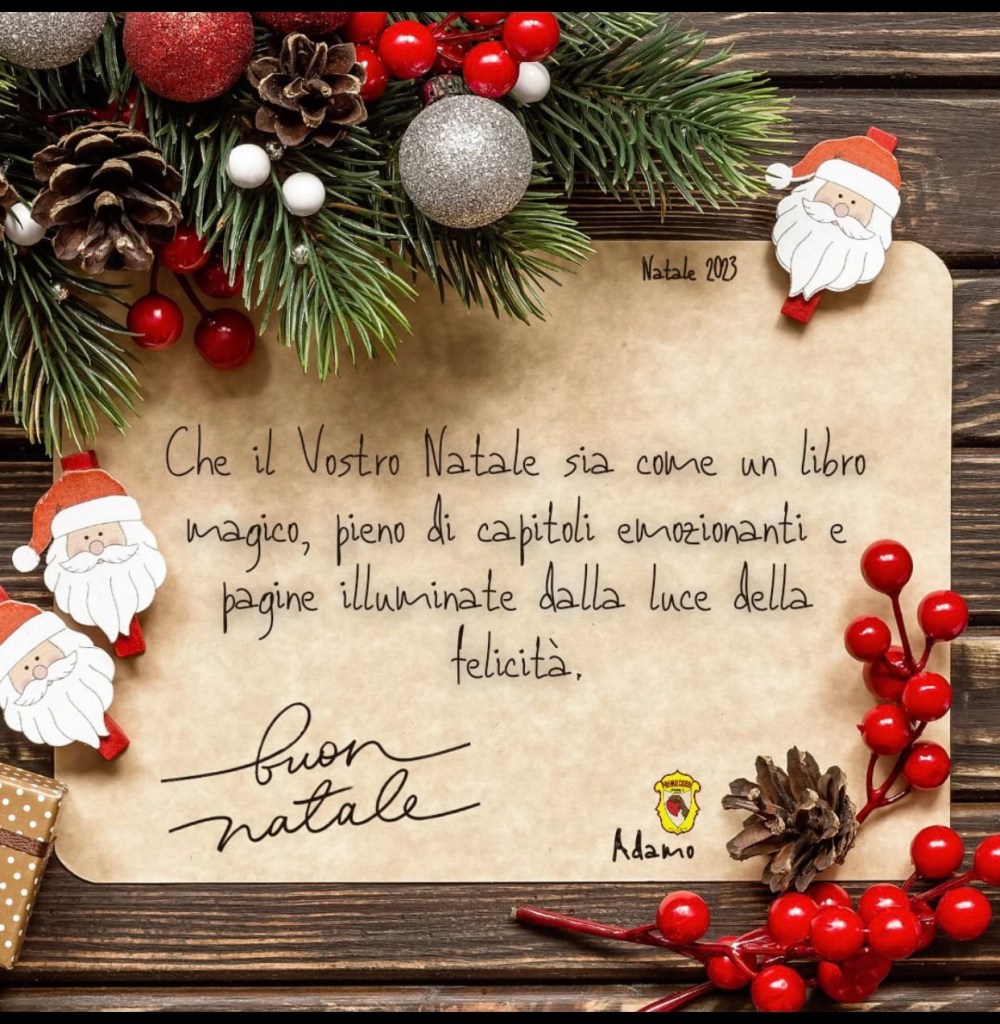 Natale 2023
Che il Vostro Natale sia come un libro
magico, pieno di capitoli emozionanti e
pagine illuminate dalla luce della
felicità.
buon
natale
Adamo